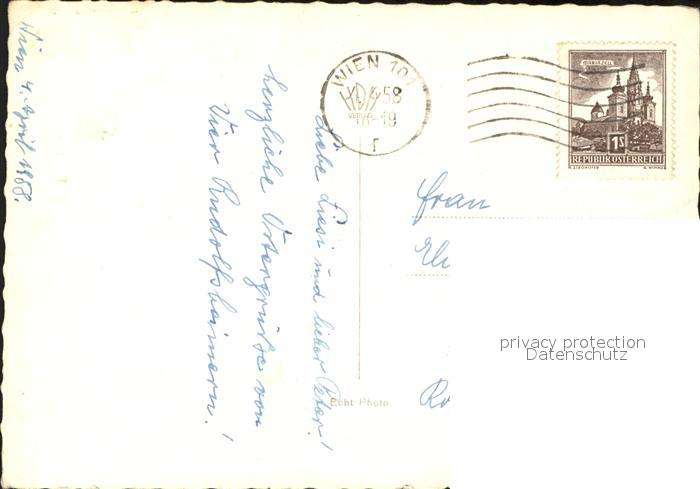 Wien 4. April 1958.
Liebe Liesi und lieber Peter!
herzliche Ostergrüße von
Vier Rudolfsheimern!
WIEN 101
58
18-19
f
MARIAZELL
1S
REPUBLIK ÖSTERREICH
Frau
Ro
Echt Photo
privacy protection
Datenschutz